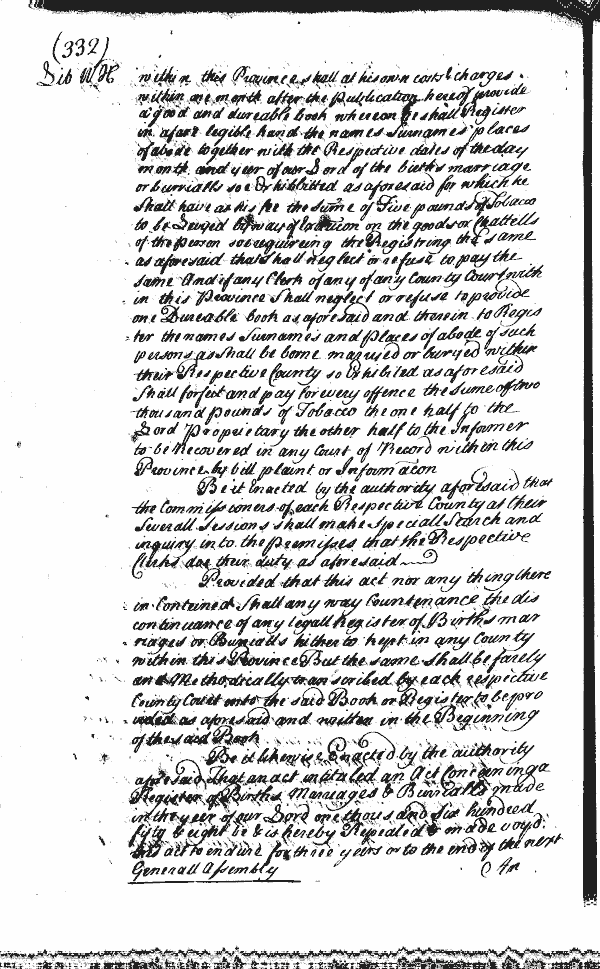 (332)
Lib W H within this Province shall at his own costs & charges
within one month after the publication hereof provide
a good and dureable book whereon he shall Register
in a fare legible hand the names Surnames places
of abode together with the Respective dates of the day
month and year of our Lord of the births marriage
or burrialls soe Exhibitted as aforesaid for which he
Shall have as his fee the sume of Five pounds of Tobacco
to be Levyed by way of Execution on the goods or Chattells
of the person soe requireing the Registring the same
as aforesaid that shall neglect or refuse to pay the
same And if any Clerk of any of any County Court with
in this Province Shall neglect or refuse to provide
one Dureable book as aforesaid and therein to Regis
ter the names Surnames and places of abode of such
persons as shall be borne maryed or buryed within
their Respective County so Exhibited as aforesaid
Shall forfeit and pay for every offence the sume of two
thousand pounds of Tobacco the one half to the
Lord Proprietary the other half to the Informer
to be Recovered in any Court of Record within this
Province by bill plaint or Informacon
Be it Enacted by the authority aforesaid that
the Commissioners of each Respective County at their
Severall Sessions shall make Speciall Search and
inquiry in to the premisses that the Respective
Clerks doe their duty as aforesaid
Provided that this act nor any thing there
in Contained Shall any way Countenance the dis
continuance of any legall Register of Births mar
riages or Burialls hitherto kept in any County
within this Province But the same shall be farely
and Methodically transcribed by each respective
County Court into the said Book or Register to be pro
vided as aforesaid and written in the Beginning
of the said Book
Be it likewise Enacted by the authority
aforesaid That an act intituled an Act Concerning a
Register of Births Marriages & Burialls made
in the year of our Lord one thousand six hundred
fifty & eight be & is hereby Repealed & made voyd.
this act to endure for three years or to the end of the next
Generall Assembly
An